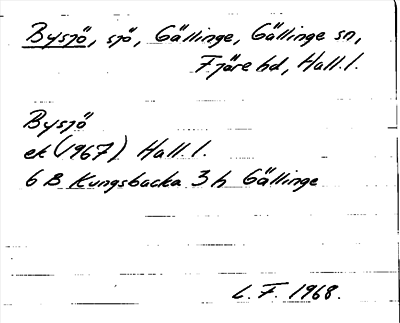 Bysjö, sjö, Gällinge, Gällinge sn,
Fjäre hd, Hall. l.
Bysjö
ek (1967) Hall. l.
6 B Kungsbacka 3 h Gällinge
L. F. 1968.